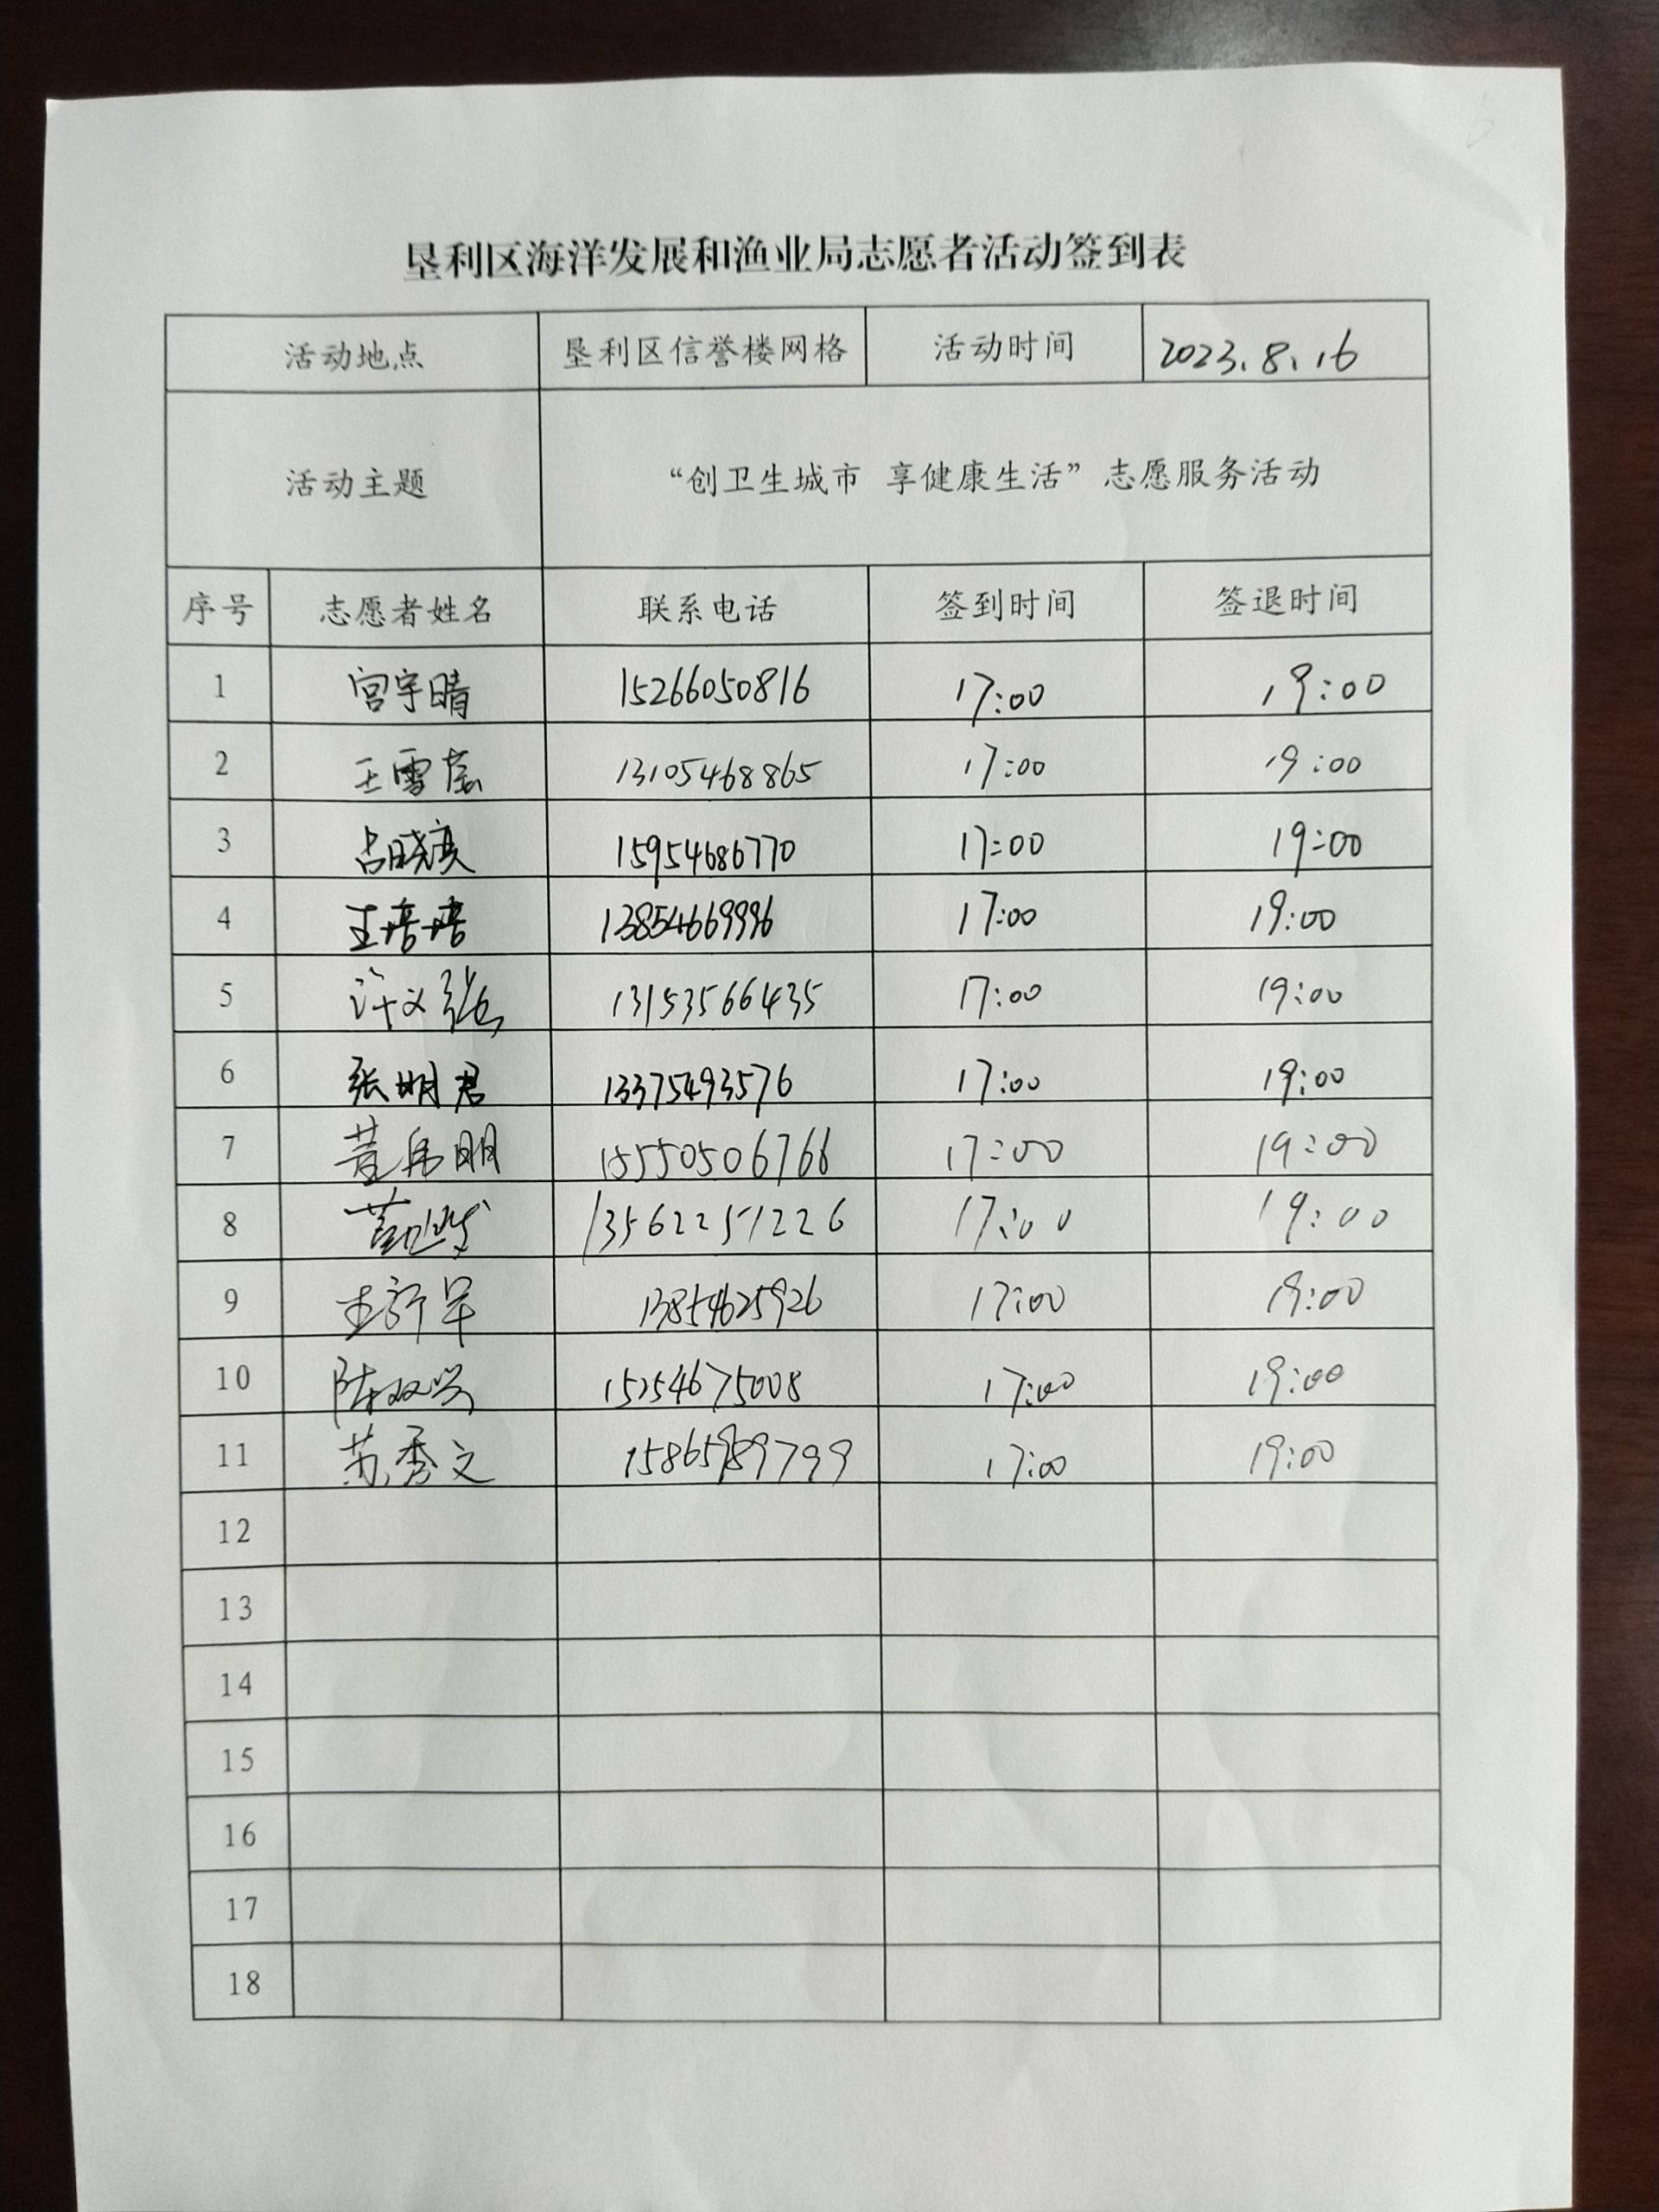 垦利区海洋发展和渔业局志愿者活动签到表
活动地点 垦利区信誉楼网格 活动时间 2023.8.16
活动主题 “创卫生城市 享健康生活”志愿服务活动
序号 志愿者姓名 联系电话 签到时间 签退时间
1 宫宇晴 15266050816 17:00 19:00
2 王雪 13105468865 17:00 19:00
3 15954686770 17:00 19:00
4 王培培 13854669996 17:00 19:00
5 许义强 13153566435 17:00 19:00
6 张明君 13375493576 17:00 19:00
7 15550506766 17:00 19:00
8 13562251226 17:00 19:00
9 13854625926 17:00 19:00
10 陈双兴 15254675008 17:00 19:00
11 苏秀文 15865989799 17:00 19:00
12
13
14
15
16
17
18